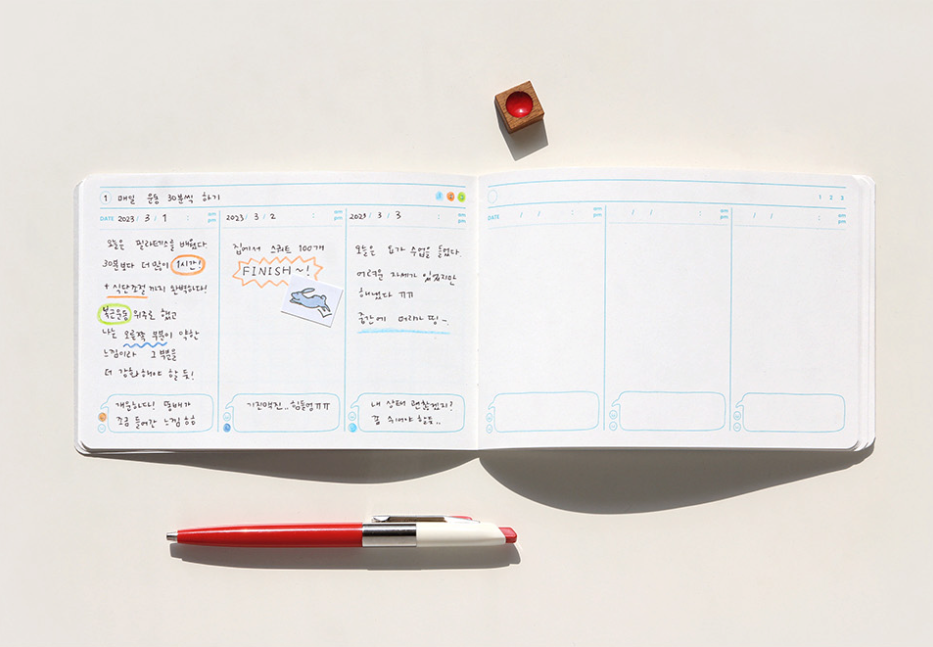 1 매일 운동 30분씩 하기
DATE 2023 / 3 / 1 : am pm
오늘은 필라테스를 배웠다.
30분보다 더 많이 1시간!
+ 식단조절까지 완벽하다!
복근운동 위주로 했고
나는 오른쪽 부분이 약한
느낌이라 그 부분을
더 강화해야 할 듯!
개운하다! 똥배가
조금 들어간 느낌 헝헝
2023 / 3 / 2 : am pm
집에서 스쿼트 100개
FINISH~!
기진맥진.. 힘들엉ㅠㅠ
2023 / 3 / 3 : am pm
오늘은 요가 수업을 들었다.
어려운 자세가 있었지만
해냈다 ㅠㅠ
중간에 머리가 띵~.
내 상태 괜찮겠지?
푹 쉬어야 할듯..
1 2 3
DATE / / : am pm
/ / : am pm
/ / : am pm